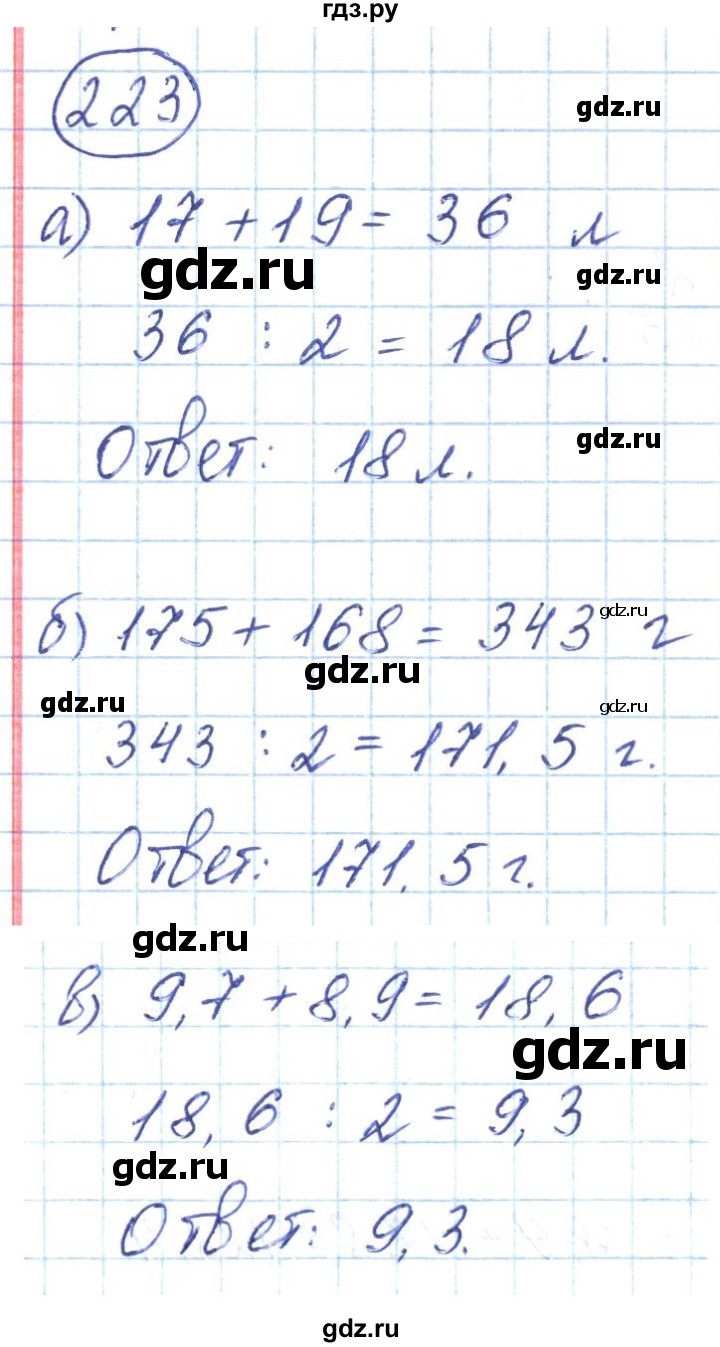 гдз.ру
223
gdz.ru
а) 17 + 19 = 36 л
gdz.ru
gdz.ru
36 : 2 = 18 л.
Ответ: 18 л.
gdz.ru
б) 175 + 168 = 343 г
gdz.ru
gdz.ru
gdz.ru
gdz.ru
343 : 2 = 171,5 г.
Ответ: 171,5 г.
gdz.ru
в) 9,7 + 8,9 = 18,6
gdz.ru
18,6 : 2 = 9,3
gdz.ru
Ответ: 9,3.
gdz.ru